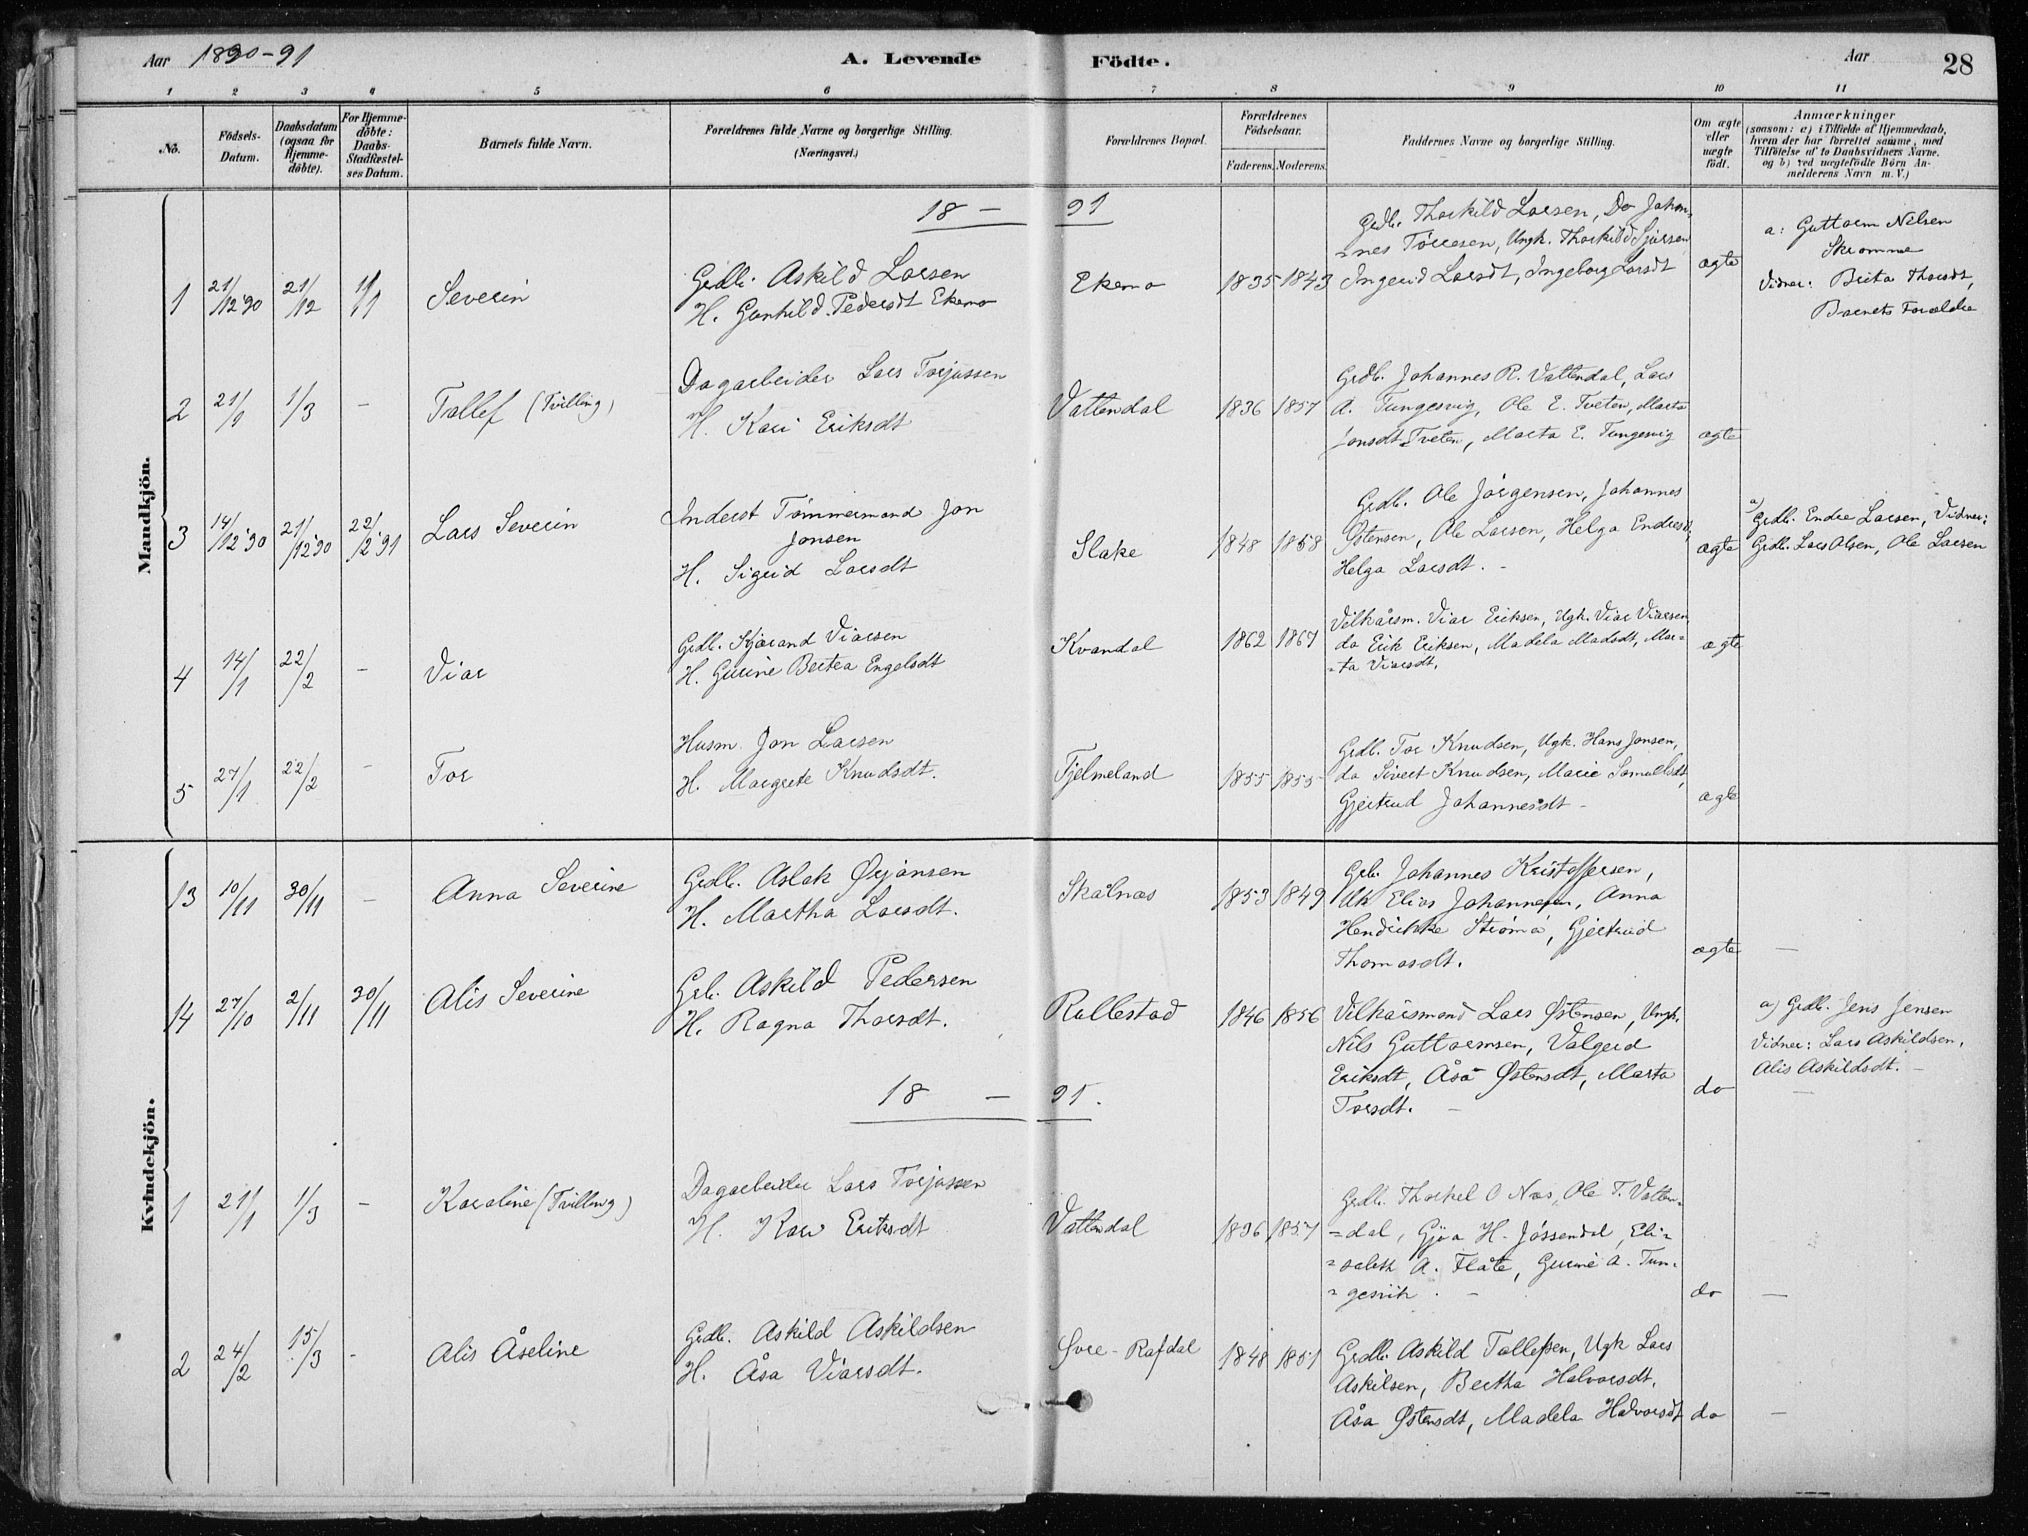 Aar 1890-91
A. Levende Födte.
Aar
28
1 2 3 4 5 6 7 8 9 10 11
No.
Födsels-Datum.
Daabsdatum (ogsaa for Hjemme-döbte).
For Hjemme-döbte: Daabs-Stadfæstel-ses Datum.
Barnets fulde Navn.
Forældrenes fulde Navne og borgerlige Stilling.
(Næringsvei.)
Forældrenes Bopæl.
Forældrenes Födselsaar.
Faderens. Moderens.
Faddernes Navne og borgerlige Stilling.
Om ægte eller uægte födt.
Anmærkninger
(saasom: a) i Tilfælde af Hjemmedaab,
hvem der har forrettet samme, med
Tilföielse af to Daabsvidners Navne.
og b) ved uægtefödte Börn An-
melderens Navn m. V.)
Mandkjön.
18 — 91
1 21/12 90 21/12 1/1 Severin
Grdb. Askild Larsen
H. Gunhild Pedersdt Ekemo
Ekemo 1835 1843
Grdb. Thorkild Larsen, Do Johan-
nes Tørresen, Ungk. Thorkild Sjursen
Ingerid Larsdt, Ingeborg Larsdt
ægte
a: Guttorm Nilsen
Skromme
Vidner: Brita Thorsdt,
Barnets Forældre
2 21/1 1/3 - Tallef (Tvilling)
Dagarbeider Lars Torjussen
H. Kari Eriksdt
Vattendal 1836 1857
Grdb. Johannes R. Vattendal, Lars
A. Tungesvig, Ole E. Tveten, Marta
Jonsdt Tveten, Marta E. Tungesvig
ægte
3 14/12 90 21/12 90 22/2 91 Lars Severin
Inderst Tømmermand Jon
Jonsen
H. Sigrid Larsdt
Slake 1848 1858
Grdb. Ole Jørgensen, Johannes
Østensen, Ole Larsen, Helga Endresdt,
Helga Larsdt. -
ægte
a) Grdb. Endre Larsen, Vidner:
Grdb. Lars Olsen, Ole Larsen
4 14/1 22/2 - Viar
Grdb. Kjørand Viarsen
H. Gurine Bertea Engelsdt
Kvandal 1862 1867
Vilkårsm. Viar Eriksen, Ugk. Viar Viarsen,
do Erik Eriksen, Madela Madsdt, Mar-
-ta Viarsdt.
ægte
5 27/1 22/2 - Tor
Husm. Jon Larsen
H. Margrete Knudsdt.
Fjelmeland 1855 1855
Grdb. Tor Knudsen, Ugk. Hans Jonsen,
do Sivert Knudsen, Marie Samuelsdt,
Gjertrud Johannesdt -
ægte
Kvindekjön.
13 10/11 30/11 - Anna Severine
Grdb. Aslak Ørjansen
H. Martha Larsdt.
Skålnæs 1853 1849
Grb. Johannes Kristoffersen,
Uk Elias Johannesen, Anna
Hendrikke Strømø, Gjertrud
Thomasdt.
ægte -
14 27/10 2/11 30/11 Alis Severine
Grb. Askild Pedersen
H. Ragna Thorsdt.
Rullestad 1846 1856
Vilkårsmand Lars Østensen, Ungk.
Nils Guttormsen, Valgerd
Eriksdt, Åsa Østensdt, Marta
Torsdt. -
do
a) Grdb. Jens Jensen
Vidner: Lars Askildsen,
Alis Askildsdt. -
18 — 91.
1 21/1 1/3 - Karoline (Tvilling)
Dagarbeider Lars Torjussen
H. Kari Eriksdt
Vattendal 1836 1857
Grdb. Thorkel O Næs, Ole T. Vatten-
-dal, Gjøa H. Jøssendal, Eli-
-sabeth A. Flåte, Gurine A. Tun-
-gesvik. -
do -
2 24/2 15/3 - Alis Åseline
Grdb. Askild Askildsen
H. Åsa Viarsdt.
Øvre-Rafdal 1848 1851
Grdb. Askild Tallefsen, Ugk Lars
Askilsen, Bertha Halvorsdt.
Åsa Østensdt, Madela Halvorsdt
do -